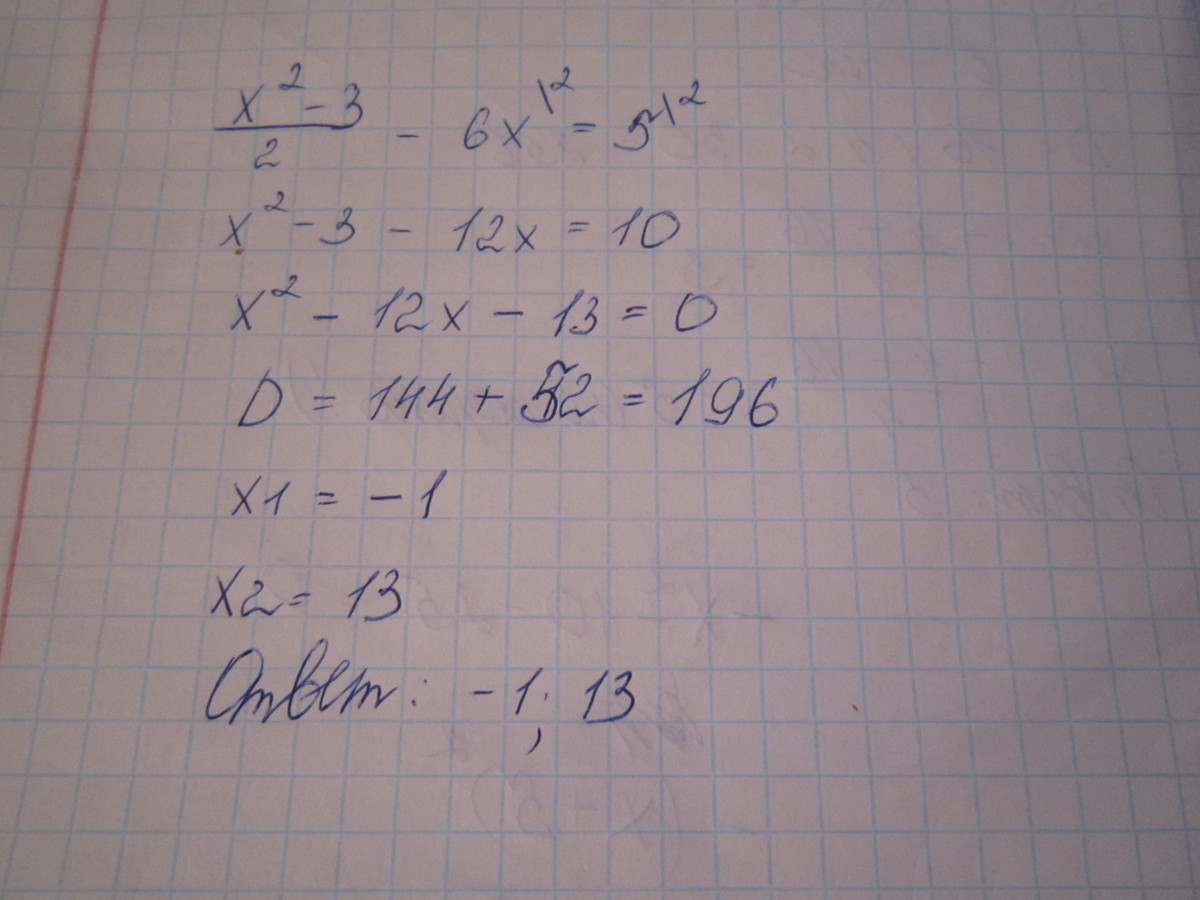 x² - 3 / 2 - 6x |² = 5 |²
x² - 3 - 12x = 10
x² - 12x - 13 = 0
D = 144 + 52 = 196
x1 = -1
x2 = 13
Ответ: -1; 13